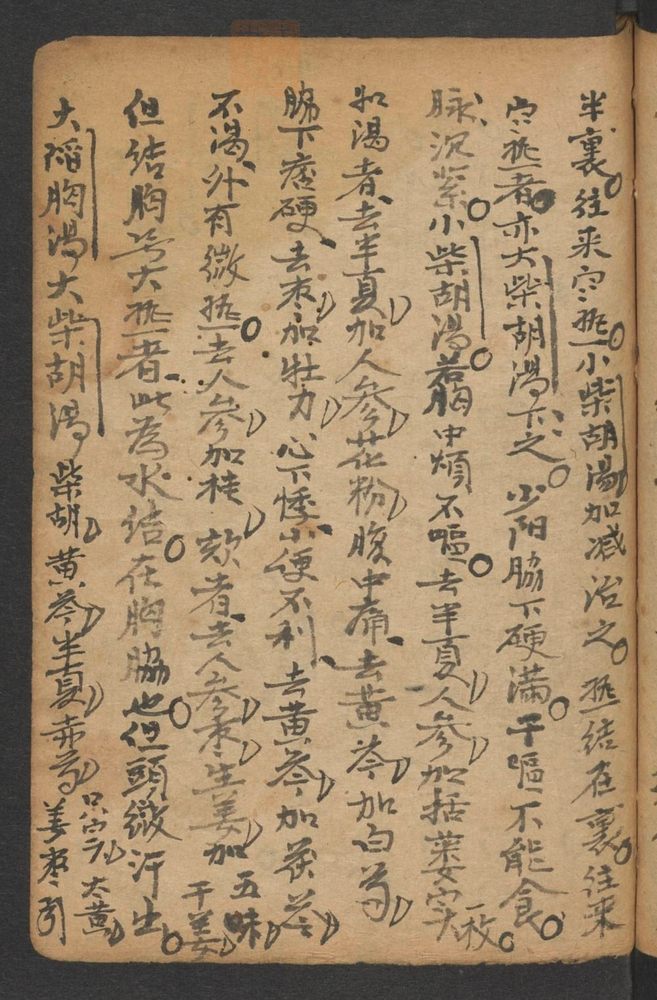 半裏。往来寒热。小柴胡湯加减治之。热结在裏。往来
寒热者。亦大柴胡湯下之。少阳脇下硬满。干嘔不能食。
脉沉紧。小柴胡湯。若胸中烦、不嘔。去半夏人参加括蒌实一枚。
如渴者、去半夏加人参花粉腹中痛、去黄芩加白芍
脇下痞硬、去枣加牡力心下悸小便不利、去黄芩加茯苓
不渴、外有微热。去人参加桂 欬者去人参枣生姜加五味干姜
但结胸旡大热者、此為水结。在胸脇也。但頭微汗出。
大陷胸湯大柴胡湯柴胡黄芩半夏赤芍只实大黄姜枣引